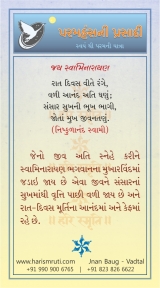 પરબ્રહ્મની પ્રસાદી
સ્વયં થી પરબની યાત્રા
જય સ્વામિનારાયણ
રાત દિવસ વીતે રંગે,
વળી આનંદ અતિ ઘણું;
સંસાર સુખની ભૂખ ભાગી,
જોતાં મુખ જીવનતણું.
(નિષ્કુળાનંદ સ્વામી)
જેનો જીવ અતિ સ્નેહે કરીને
સ્વામિનારાયણ ભગવાનના મુખારવિંદમાં
જડાઇ જાય છે એવા જીવને સંસારનાં
સુખમાંથી વૃત્તિ પાછી વળી જાય છે અને
રાત-દિવસ મૂર્તિના આનંદમાં અને કેફમાં
રહે છે.
www.harismruti.com | Jnan Baug - Vadtal
+91 990 900 6765 | +91 823 826 6622